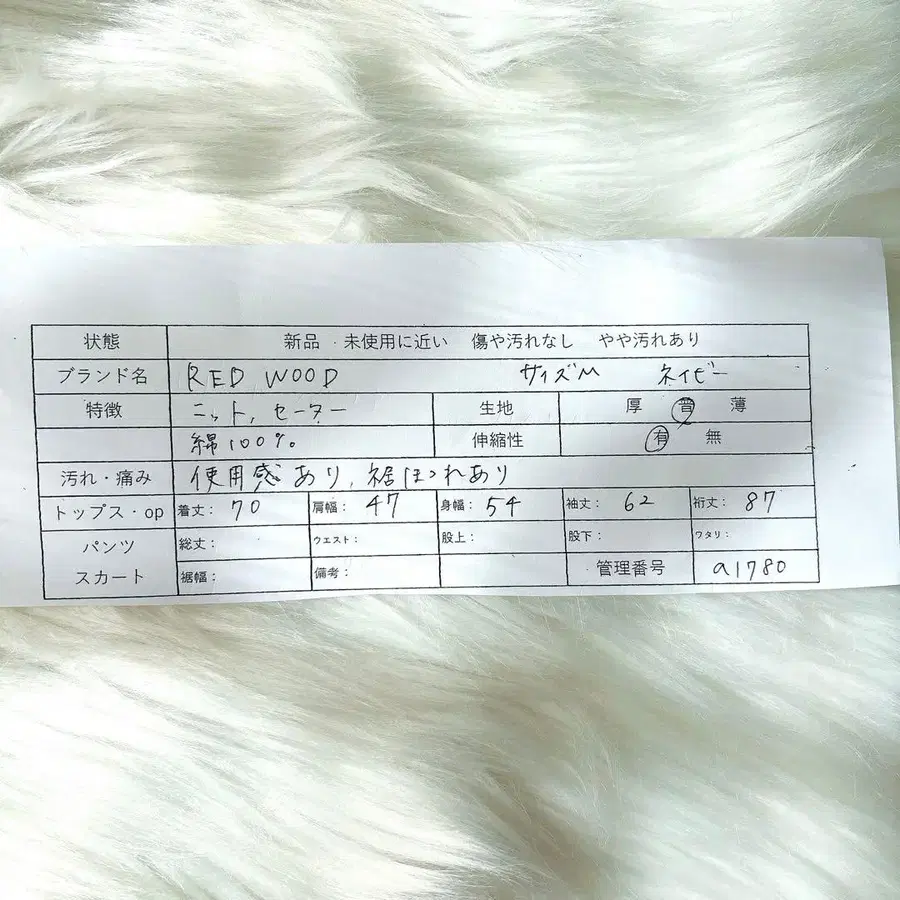 状態 新品 未使用に近い 傷や汚れなし やや汚れあり
ブランド名 RED WOOD サイズM ネイビー
特徴 ニット, セーター 生地 厚 普 薄
綿100% 伸縮性 有 無
汚れ・痛み 使用感あり, 裾ほつれあり
トップス・op 着丈: 70 肩幅: 47 身幅: 54 袖丈: 62 裄丈: 87
パンツ 総丈: ウエスト: 股上: 股下: ワタリ:
スカート 裾幅: 備考: 管理番号 a1780